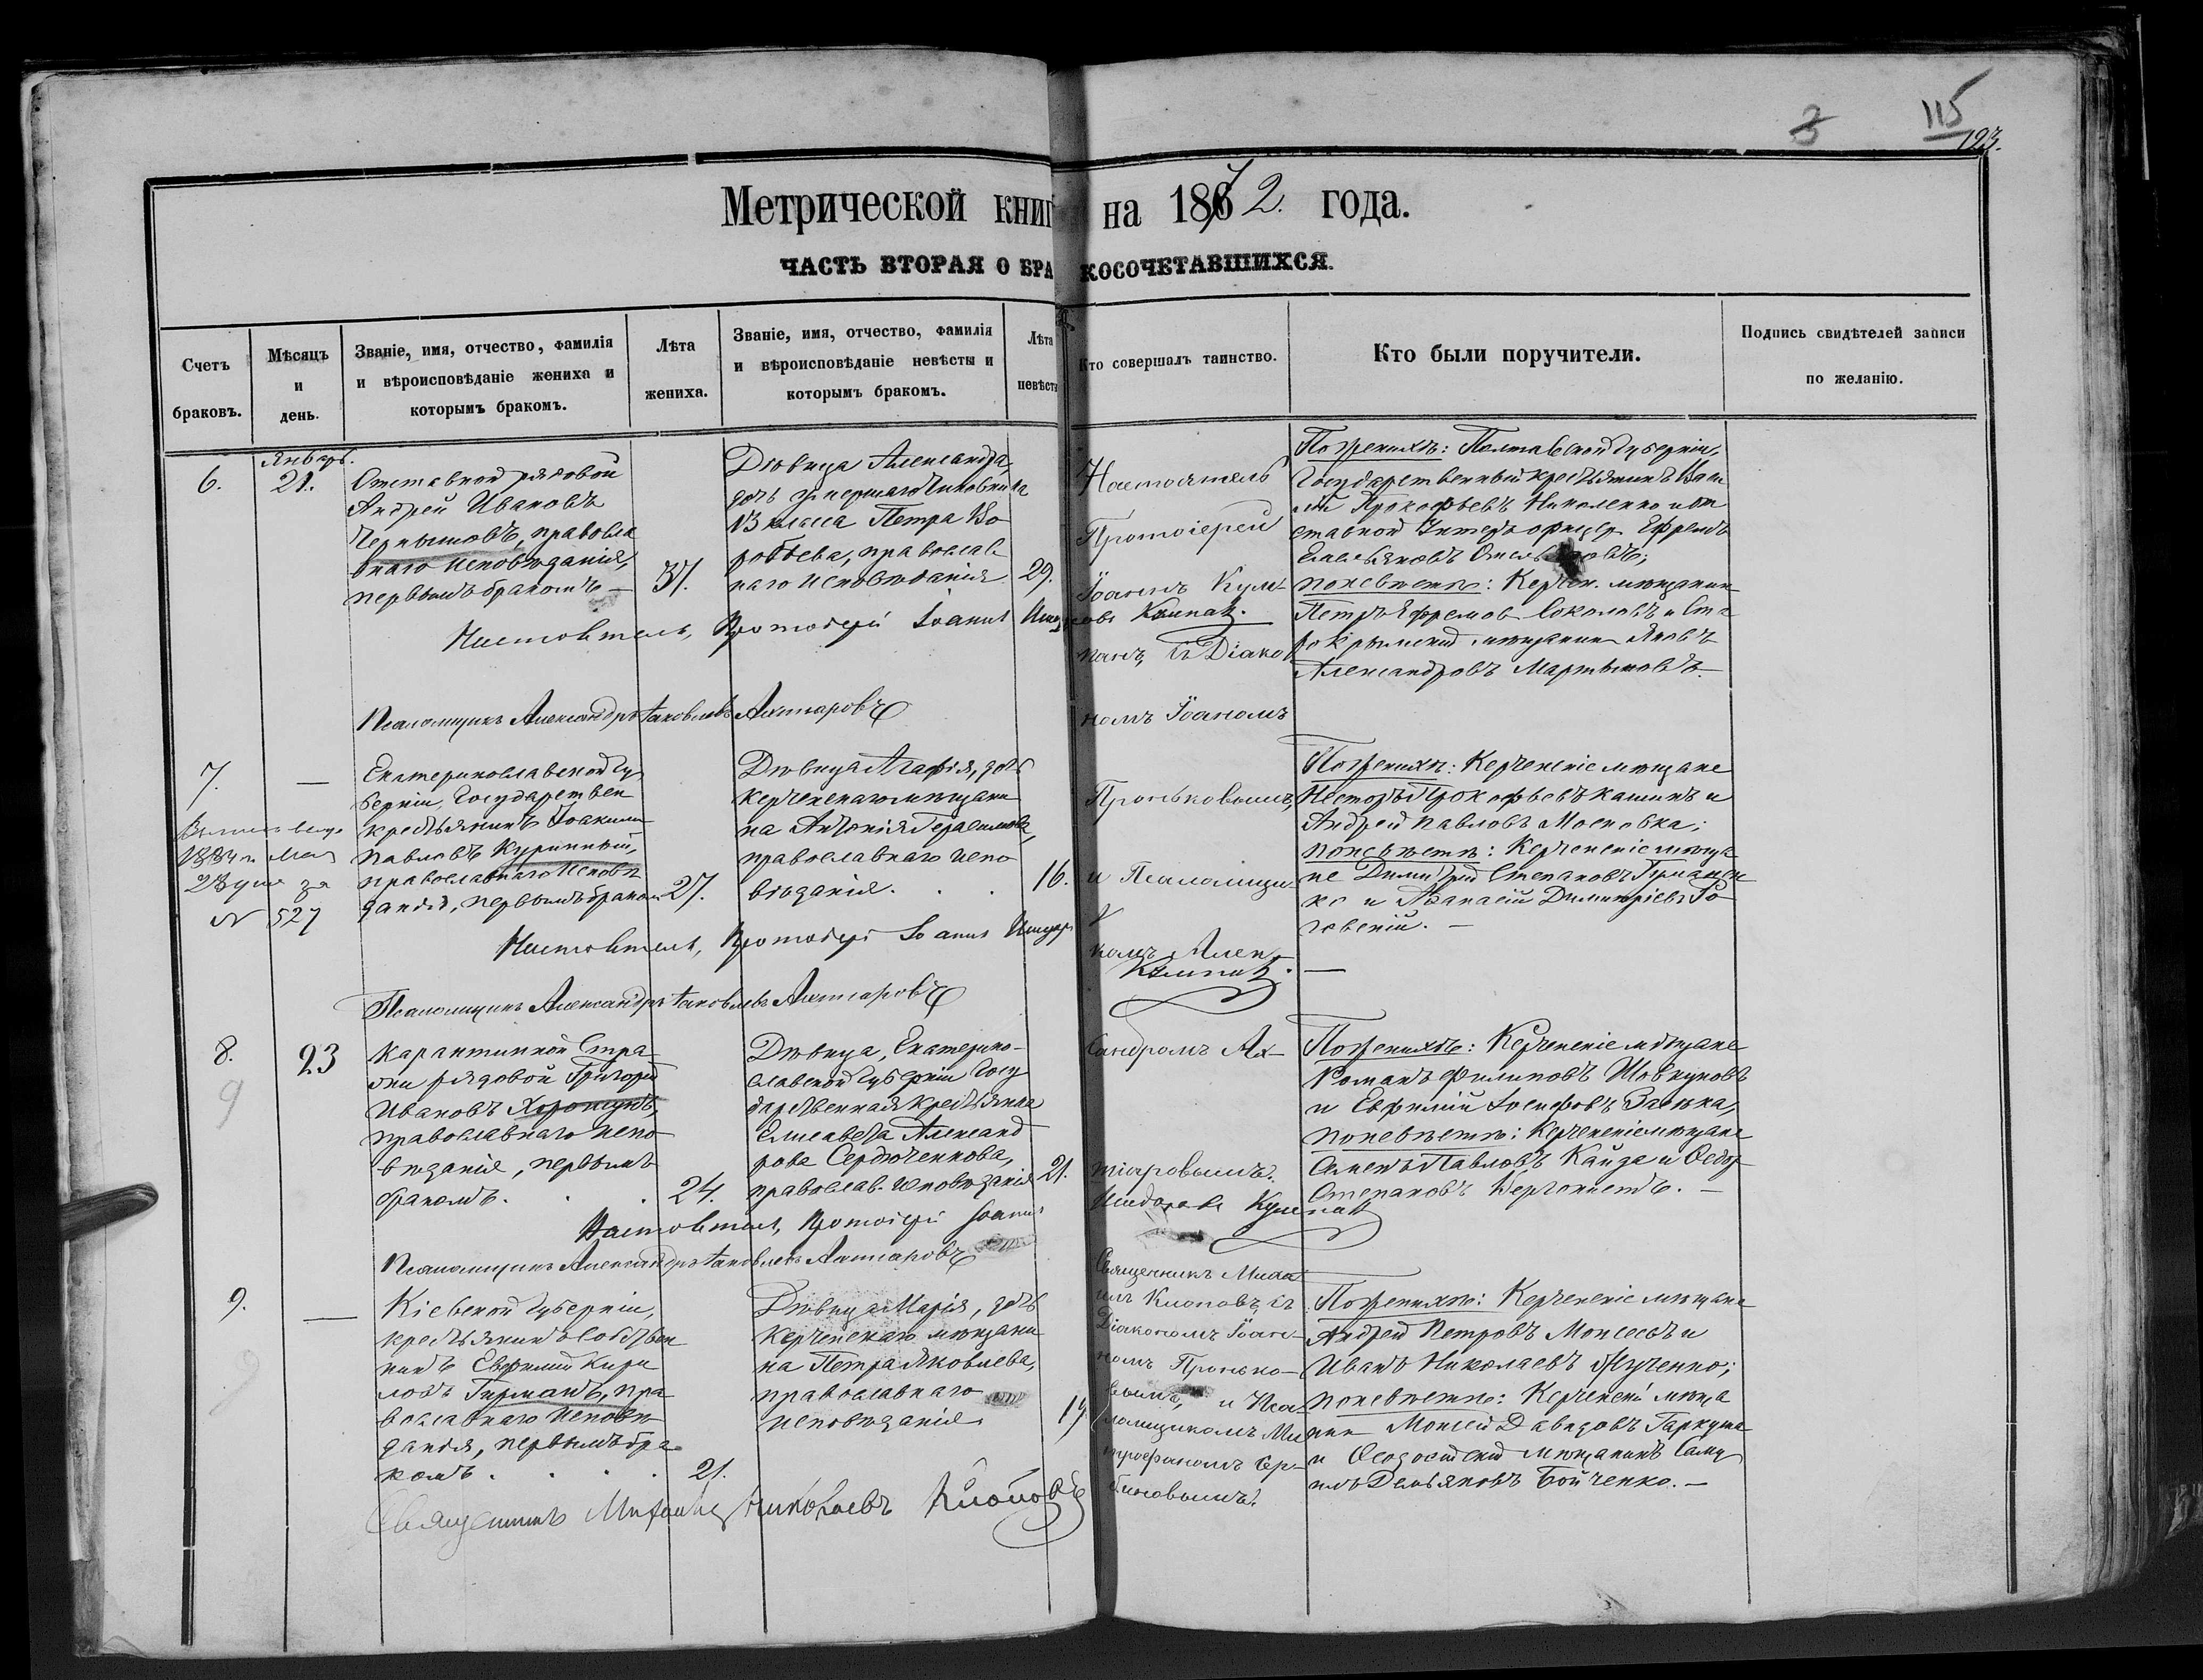 3 115
123.
Метрической книг на 1872. года.
ЧАСТЬ ВТОРАЯ О БРАКОСОЧЕТАВШИХСЯ.
Счетъ браковъ.
Мѣсяцъ и день.
Званіе, имя, отчество, фамилія
и вѣроисповѣданіе жениха и
которымъ бракомъ.
Лѣта жениха.
Званіе, имя, отчество, фамилія
и вѣроисповѣданіе невѣсты и
которымъ бракомъ.
Лѣта невѣсты
Кто совершалъ таинство.
Кто были поручители.
Подпись свидѣтелей записи
по желанію.
6.
Январь.
21.
Отставной рядовой
Андрей Ивановъ
Чернышовъ, правосла
внаго исповѣданія,
первымъ бракомъ —
37.
Дѣвица Александра,
дочь умершаго Чиновника
13 класса Петра Во
робьева, православ
наго исповѣданія
29.
Настоятель
Протоіерей
Іоаннъ Кум
панъ, съ Діако
номъ Іоаномъ
По женихѣ: Полтавской губерніи,
Государственный крестьянинъ Васи
лій Прокофьевъ Николенко и От
ставной Унтеръ офицеръ Ефремъ
Емельяновъ
по невѣстѣ: Керчен. мѣщанин
Петръ Ефремов Соколовъ и Ста
рокрымскій мѣщанин Яковъ
Александровъ Мартыновъ. —
Настоятель, Протоіерей Іоаннъ
Псаломщикъ Александръ Яковлевъ Ахтіаровъ
7.
—
Екатеринославской Гу
берніи, Государствен
крестьянинъ Іоакимъ
Павловъ Куринный,
православнаго исповѣ
данія, первымъ бракомъ
27.
1884 г. Мая
23 дня за
№ 527
Дѣвица Агафія, дочь
Керченскаго мѣщани
на Антонія Герасимова,
православнаго испо
вѣданія. . .
16.
Проньковымъ,
и Псаломщи
комъ Алек
По женихѣ: Керченскіе мѣщане
Несторъ Прокофьевъ Кашинъ и
Андрей Павловъ Московка;
по невѣстѣ: Керченскіе мѣща
не Димитрій Степановъ
ко и Афанасій Димитріевъ
Настоятель, Протоіерей Іоаннъ
Кумпанъ.
Псаломщикъ Александръ Яковлевъ Ахтіаровъ
8.
9
23
Карантинной Стра
жи рядовой Григорій
Ивановъ Хорошунъ,
православнаго испо
вѣданія, первымъ
бракомъ. . .
24.
Дѣвица, Екатерино-
славской Губерніи Госу
дарственная крестьянка
Елисавета Александ
рова Сердюченкова,
православ. исповѣданія
21.
сандромъ Ах-
тіаровымъ.
По женихѣ: Керченскіе мѣщане
Романъ Филиповъ Шовкуновъ
и Евфимій Іосифовъ Заѣка,
по невѣстѣ: Керченскіе мѣщане
Семенъ Павловъ Кайда и Ѳедоръ
Степановъ
Настоятель, Протоіерей Іоаннъ Исидоровъ Кумпанъ
Псаломщикъ Александръ Яковлевъ Ахтіаровъ
9.
—
Кіевской Губерніи,
крестьянинъ собствен
никъ Евфимій Кири
ловъ Гирманъ, пра
вославнаго исповѣ
данія, первымъ бра
комъ . . . .
21.
Дѣвица Марія, дочь
Керченскаго мѣщани
на Петра Яковлева,
православнаго
исповѣданія
19
Священникъ Миха
илъ Клоповъ, съ
Діакономъ Іоан-
номъ Пронько-
вымъ, и Пса
ломщикомъ Ми
трофаномъ Сер-
биновымъ.
По женихѣ: Керченскіе мѣщане
Андрей Петровъ Моисеевъ и
Иванъ Николаевъ Луценко;
по невѣстѣ: Керченскій мѣща
нин Моисей Давидовъ Гаркуша
и Ѳеодосійскій мѣщанинъ Саму
илъ Демьяновъ Бойченко. —
Священникъ Михаилъ Николаевъ Клоповъ